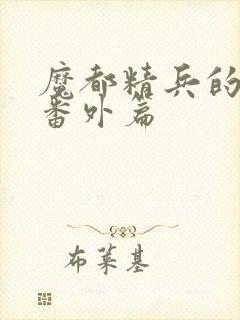 魔都精兵的
番外篇
布莱基